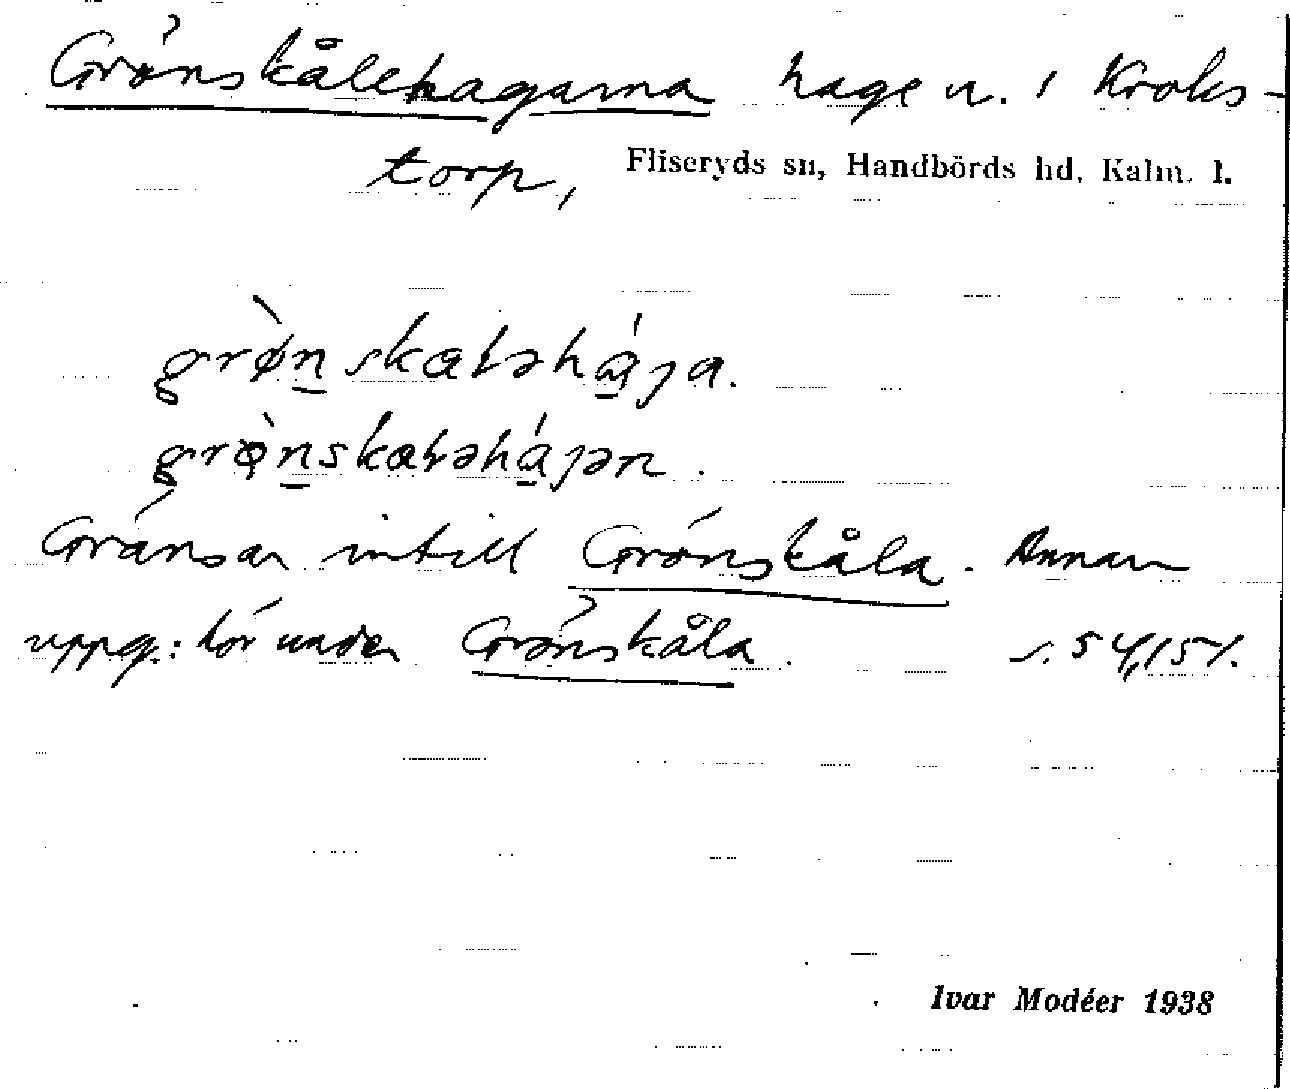 Grönskålehagarna hage n. i Kroks-
torp, Fliseryds sn, Handbörds hd, Kalm. l.
grø̀nskaɫəhája.
grø̀nskaɫəhájən.
Gränsar intill Grönskåla. Annan
uppg.: hör under Grönskåla. s. 54,151.
Ivar Modéer 1938